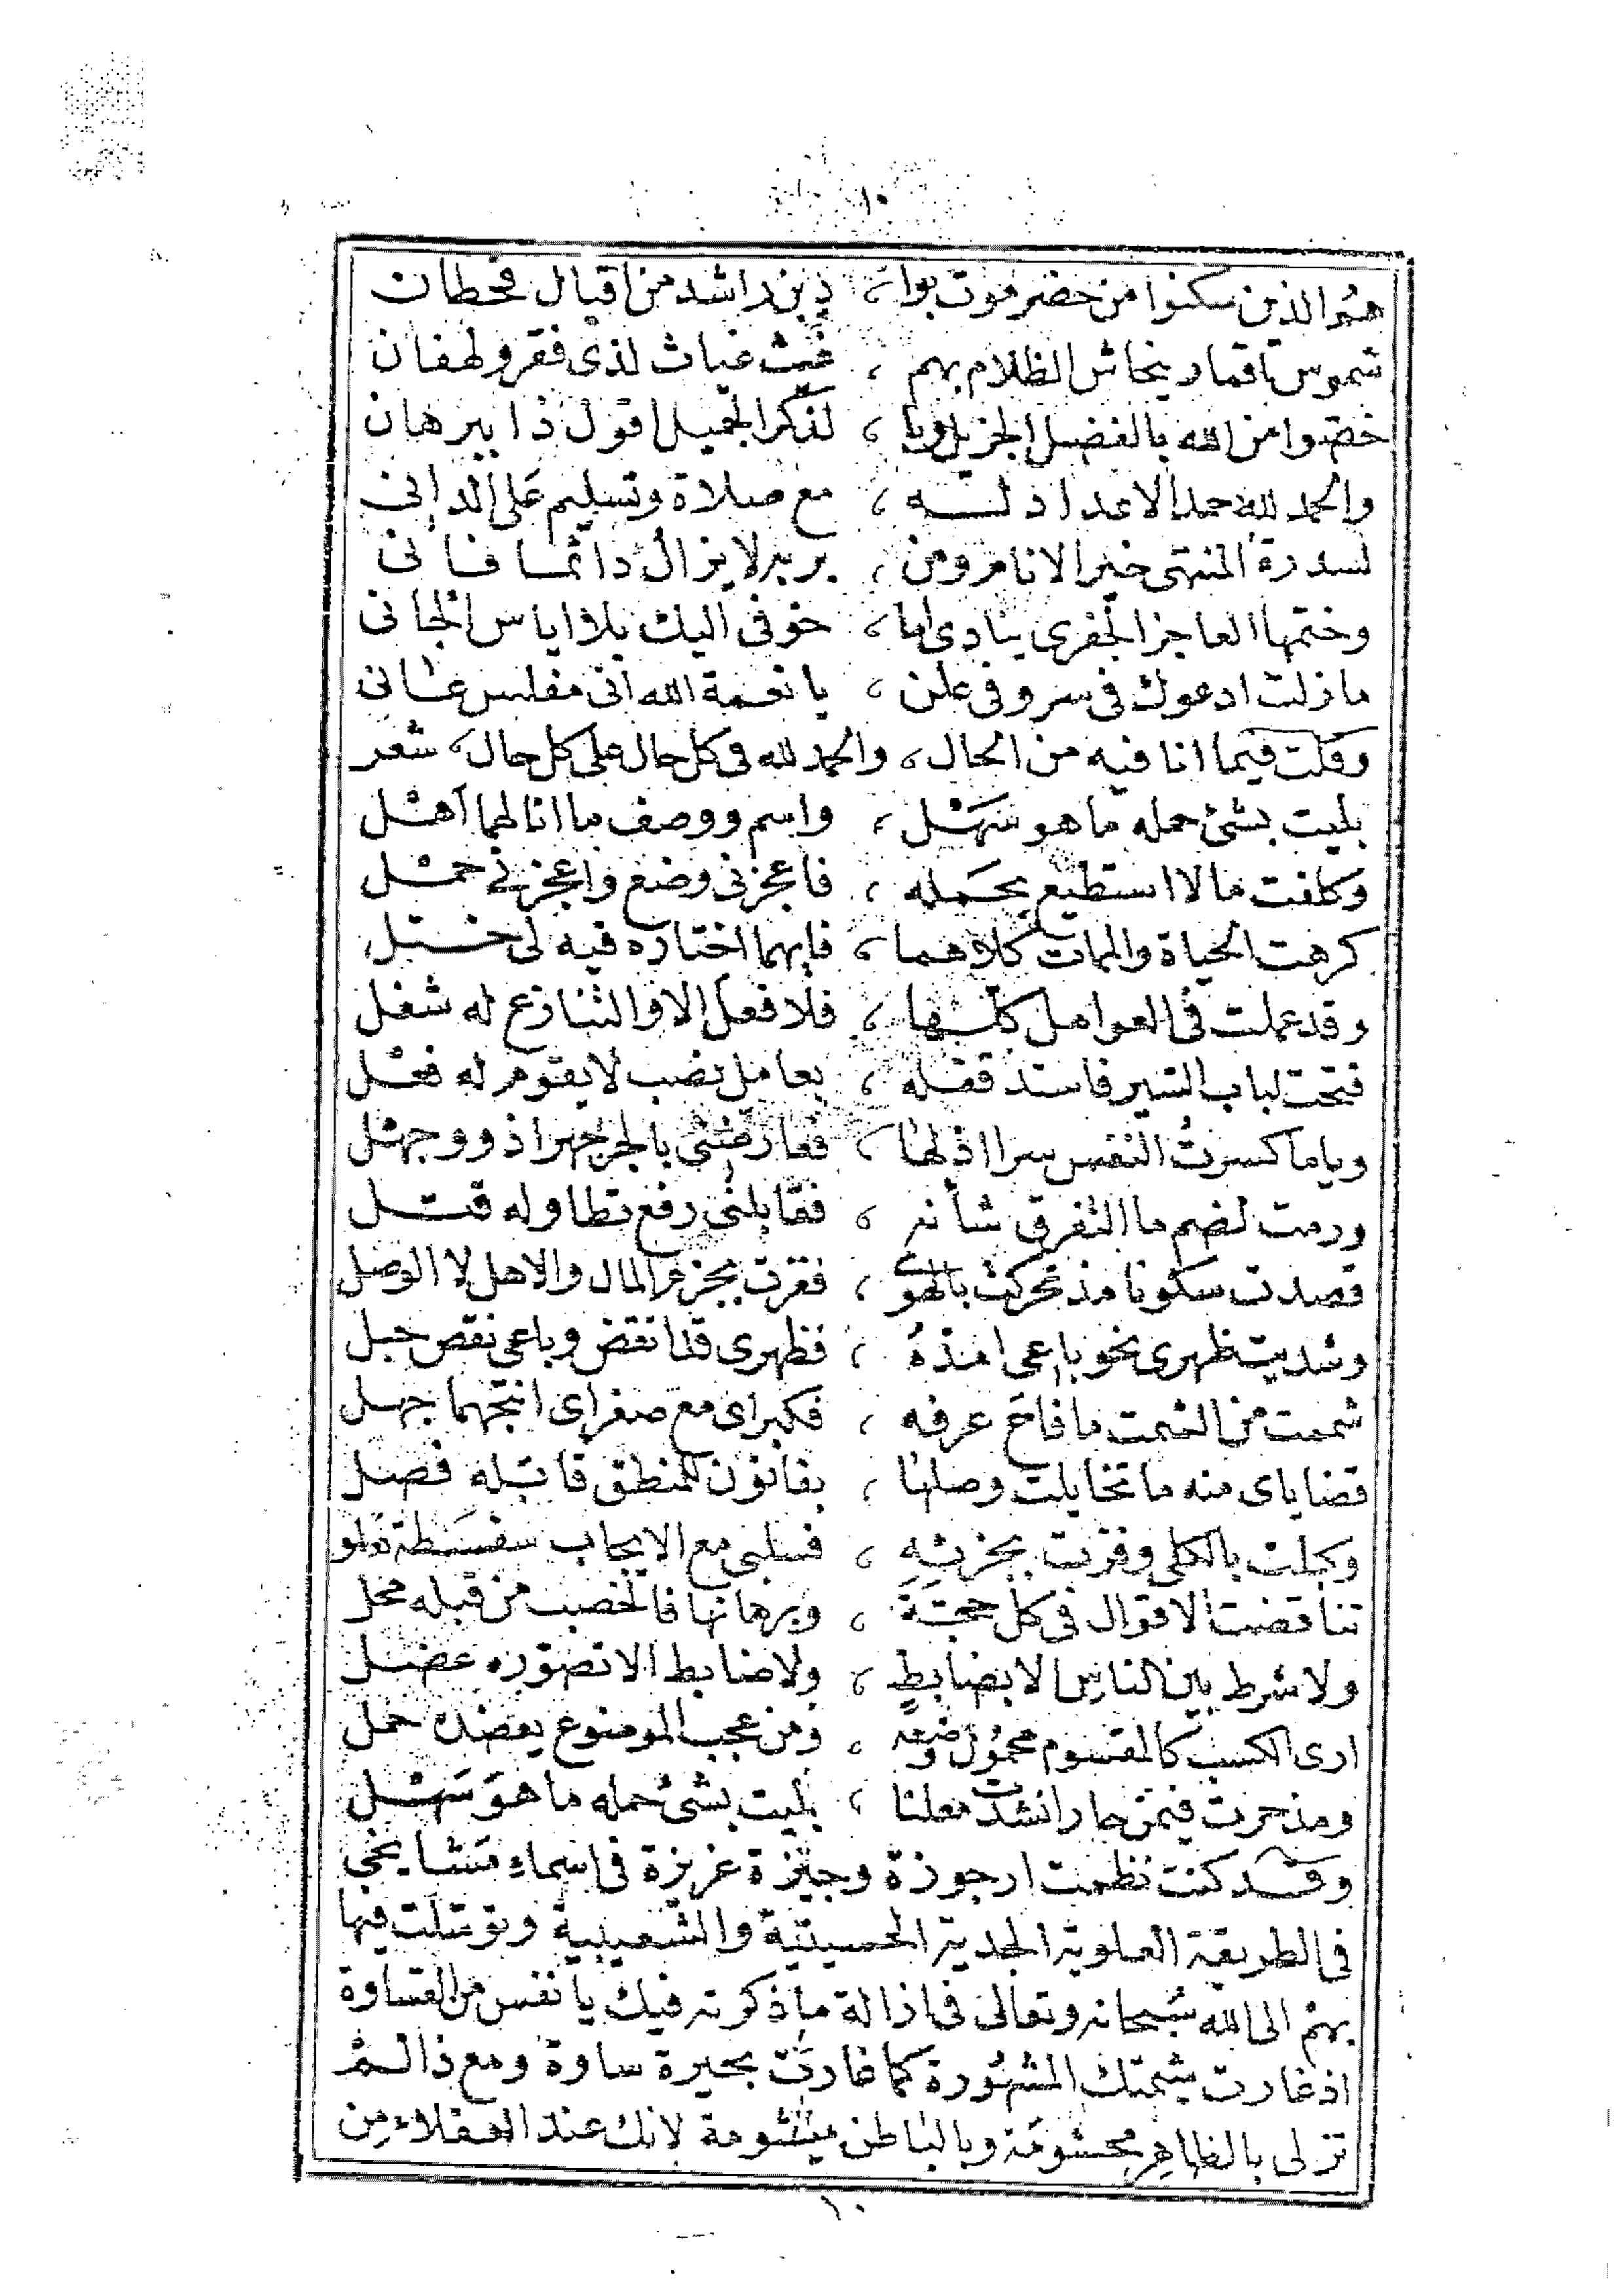 ١٠
هم الذين سكنوا من حضرموت بوا، دى بن راشد من اقيال قحطان
شموس اقمار ينحاش الظلام بهم ، غيث غياث لذى فقر ولهفان
خصّوا من الله بالفضل الجزيل وبا ، لذكر الجميل اقول ذا ببرهان
والحمد لله حمدا لا عداد لــه ، مع صلاة وتسليم على الدانى
لسدرة المنتهى خير الانام ومن ، بربه لا يزال دائما فانى
وختمها العاجز الجفرى ينادى اما ، خوفى اليك بلا اياس الجانى
ما زلت ادعوك فى سر وفى علن ، يا نعمة الله انى مفلس عانى
وقلت فيما انا فيه من الحال ، والحمد لله فى كل حال على كل حال ، شعر
بليت بشئ حمله ما هو سَهْل ، واسم ووصف ما انا لهما اهل
وكلفت ما لا استطيع بحمله ، فاعجزنى وضع واعجزنى حمل
كرهت الحياة والممات كلاهما ، فايهما اختاره فيه لى ختل
وقد عملت فى العوامل كلها ، فلا فعل الا والتنازع له شغل
فتحت لباب السير فاستد قفله ، بعامل نصب لا يقوم له فعل
وياما كسرتُ النفس سرا اذلها ، فعارضنى بالجر جهرا ذوو جهل
ورمت لضم ما التفرق شأنه ، فقابلنى رفع تطاوله قتل
قصدت سكونا مذ تحركت بالهوى ، ففزت بجزم المال والاهل لا الوصل
وشديت ظهرى نحو باعى امدهُ ، فظهرى قد انقض وباعى نقص حبل
شممت من الشمت ما فاح عرفه ، فكبراى مع صغراى انتجهما جهل
قضاياى منه ما تخايلت وصلها ، بقانون المنطق قاتله فصل
وكلت بالكلى وفزت بجزئه ، فسلبى مع الايجاب سفسطة تعلو
تناقضت الاقوال فى كل حجةَ ، وبرهانها فالخصب من قبله محل
ولا شرط بين الناس الا بضابطٍ ، ولا ضابط الا تصوّره عضل
ارى الكسب كالمقسوم محمول وضعه ، ومن عجب الموضوع يعضده حمل
ومذ حرت فيمن حار انشدت معلنا ، بليت بشئ حمله ما هوَ سَهْل
وقــد كنت نظمت ارجوزة وجيزة عزيزة فى اسماء مشايخى
فى الطريقة العلوية الجدية الحسينية والشعيبية وتوسّلت فيها
بهمْ الى الله سُبحانه وتعالى فى ازالة ما ذكرته فيك يا نفس من القساوة
اذ غارت شيمتك المشهُورة كما غارت بحيرة ساوة ومع ذا لم
تزلى بالظاهِر محشومَة وبالباطن ميشومة لانك عند العقلاء من
١٠